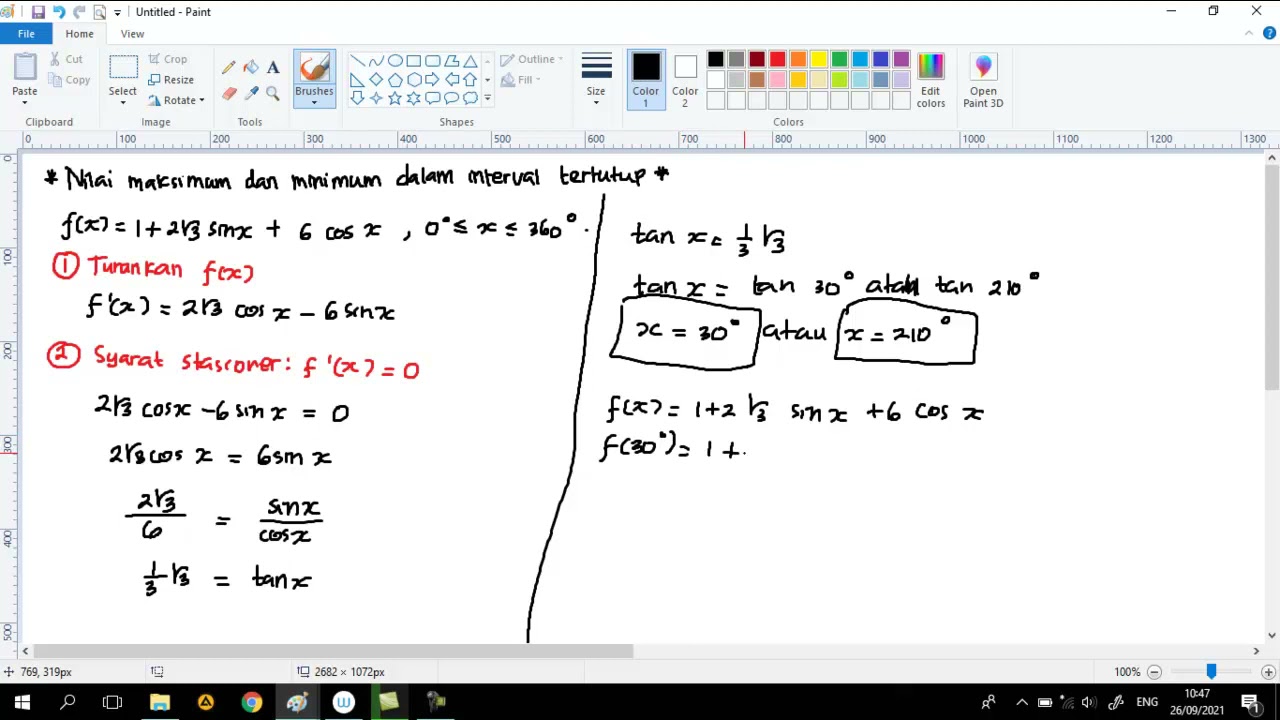 Untitled - Paint
File Home View
Paste Cut Copy Clipboard
Select Crop Resize Rotate Image
Tools
Brushes
Outline Fill Shapes
Size
Color 1 Color 2 Edit colors Colors
Open Paint 3D
0 100 200 300 400 500 600 700 800 900 1000 1100 1200 1300
0
100
200
300
400
500
* Nilai maksimum dan minimum dalam interval tertutup *
f(x) = 1 + 2√3 sin x + 6 cos x , 0° ≤ x ≤ 360°.
① Turunkan f(x)
f'(x) = 2√3 cos x - 6 sin x
② Syarat stasioner: f'(x) = 0
2√3 cos x - 6 sin x = 0
2√3 cos x = 6 sin x
2√3/6 = sin x/cos x
1/3 √3 = tan x
tan x = 1/3 √3
tan x = tan 30° atau tan 210°
x = 30° atau x = 210°
f(x) = 1 + 2 √3 sin x + 6 cos x
f(30°) = 1 +
769, 319px 2682 × 1072px 100%
ENG 10:47
26/09/2021 1